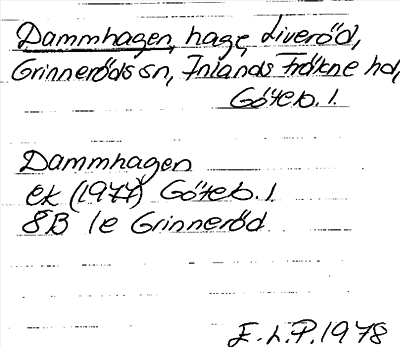 Dammhagen, hage, Liveröd,
Grinneröds sn, Inlands Fräkne hd,
Göteb. l.
Dammhagen
ek (1977) Göteb. l.
8B 1e Grinneröd
E.L.P. 1978